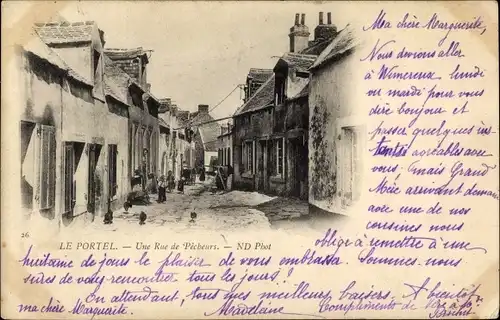 Ma chère Marguerite,
Nous devions aller
à Wimereux lundi
ou mardi pour vous
dire bonjour et
passer quelques ins-
tants agréables avec
vous, mais Grand
Mère arrivant demain
avec une de nos
cousines nous
oblige à remettre d'une
huitaine de jours le plaisir de vous embrasser. Sommes-nous
sûres de vous rencontrer tous les jours?
En attendant, tous mes meilleurs baisers. A bientôt
ma chère Marguerite. Madeleine Compliments de
26
LE PORTEL. — Une Rue de Pêcheurs. — ND Phot